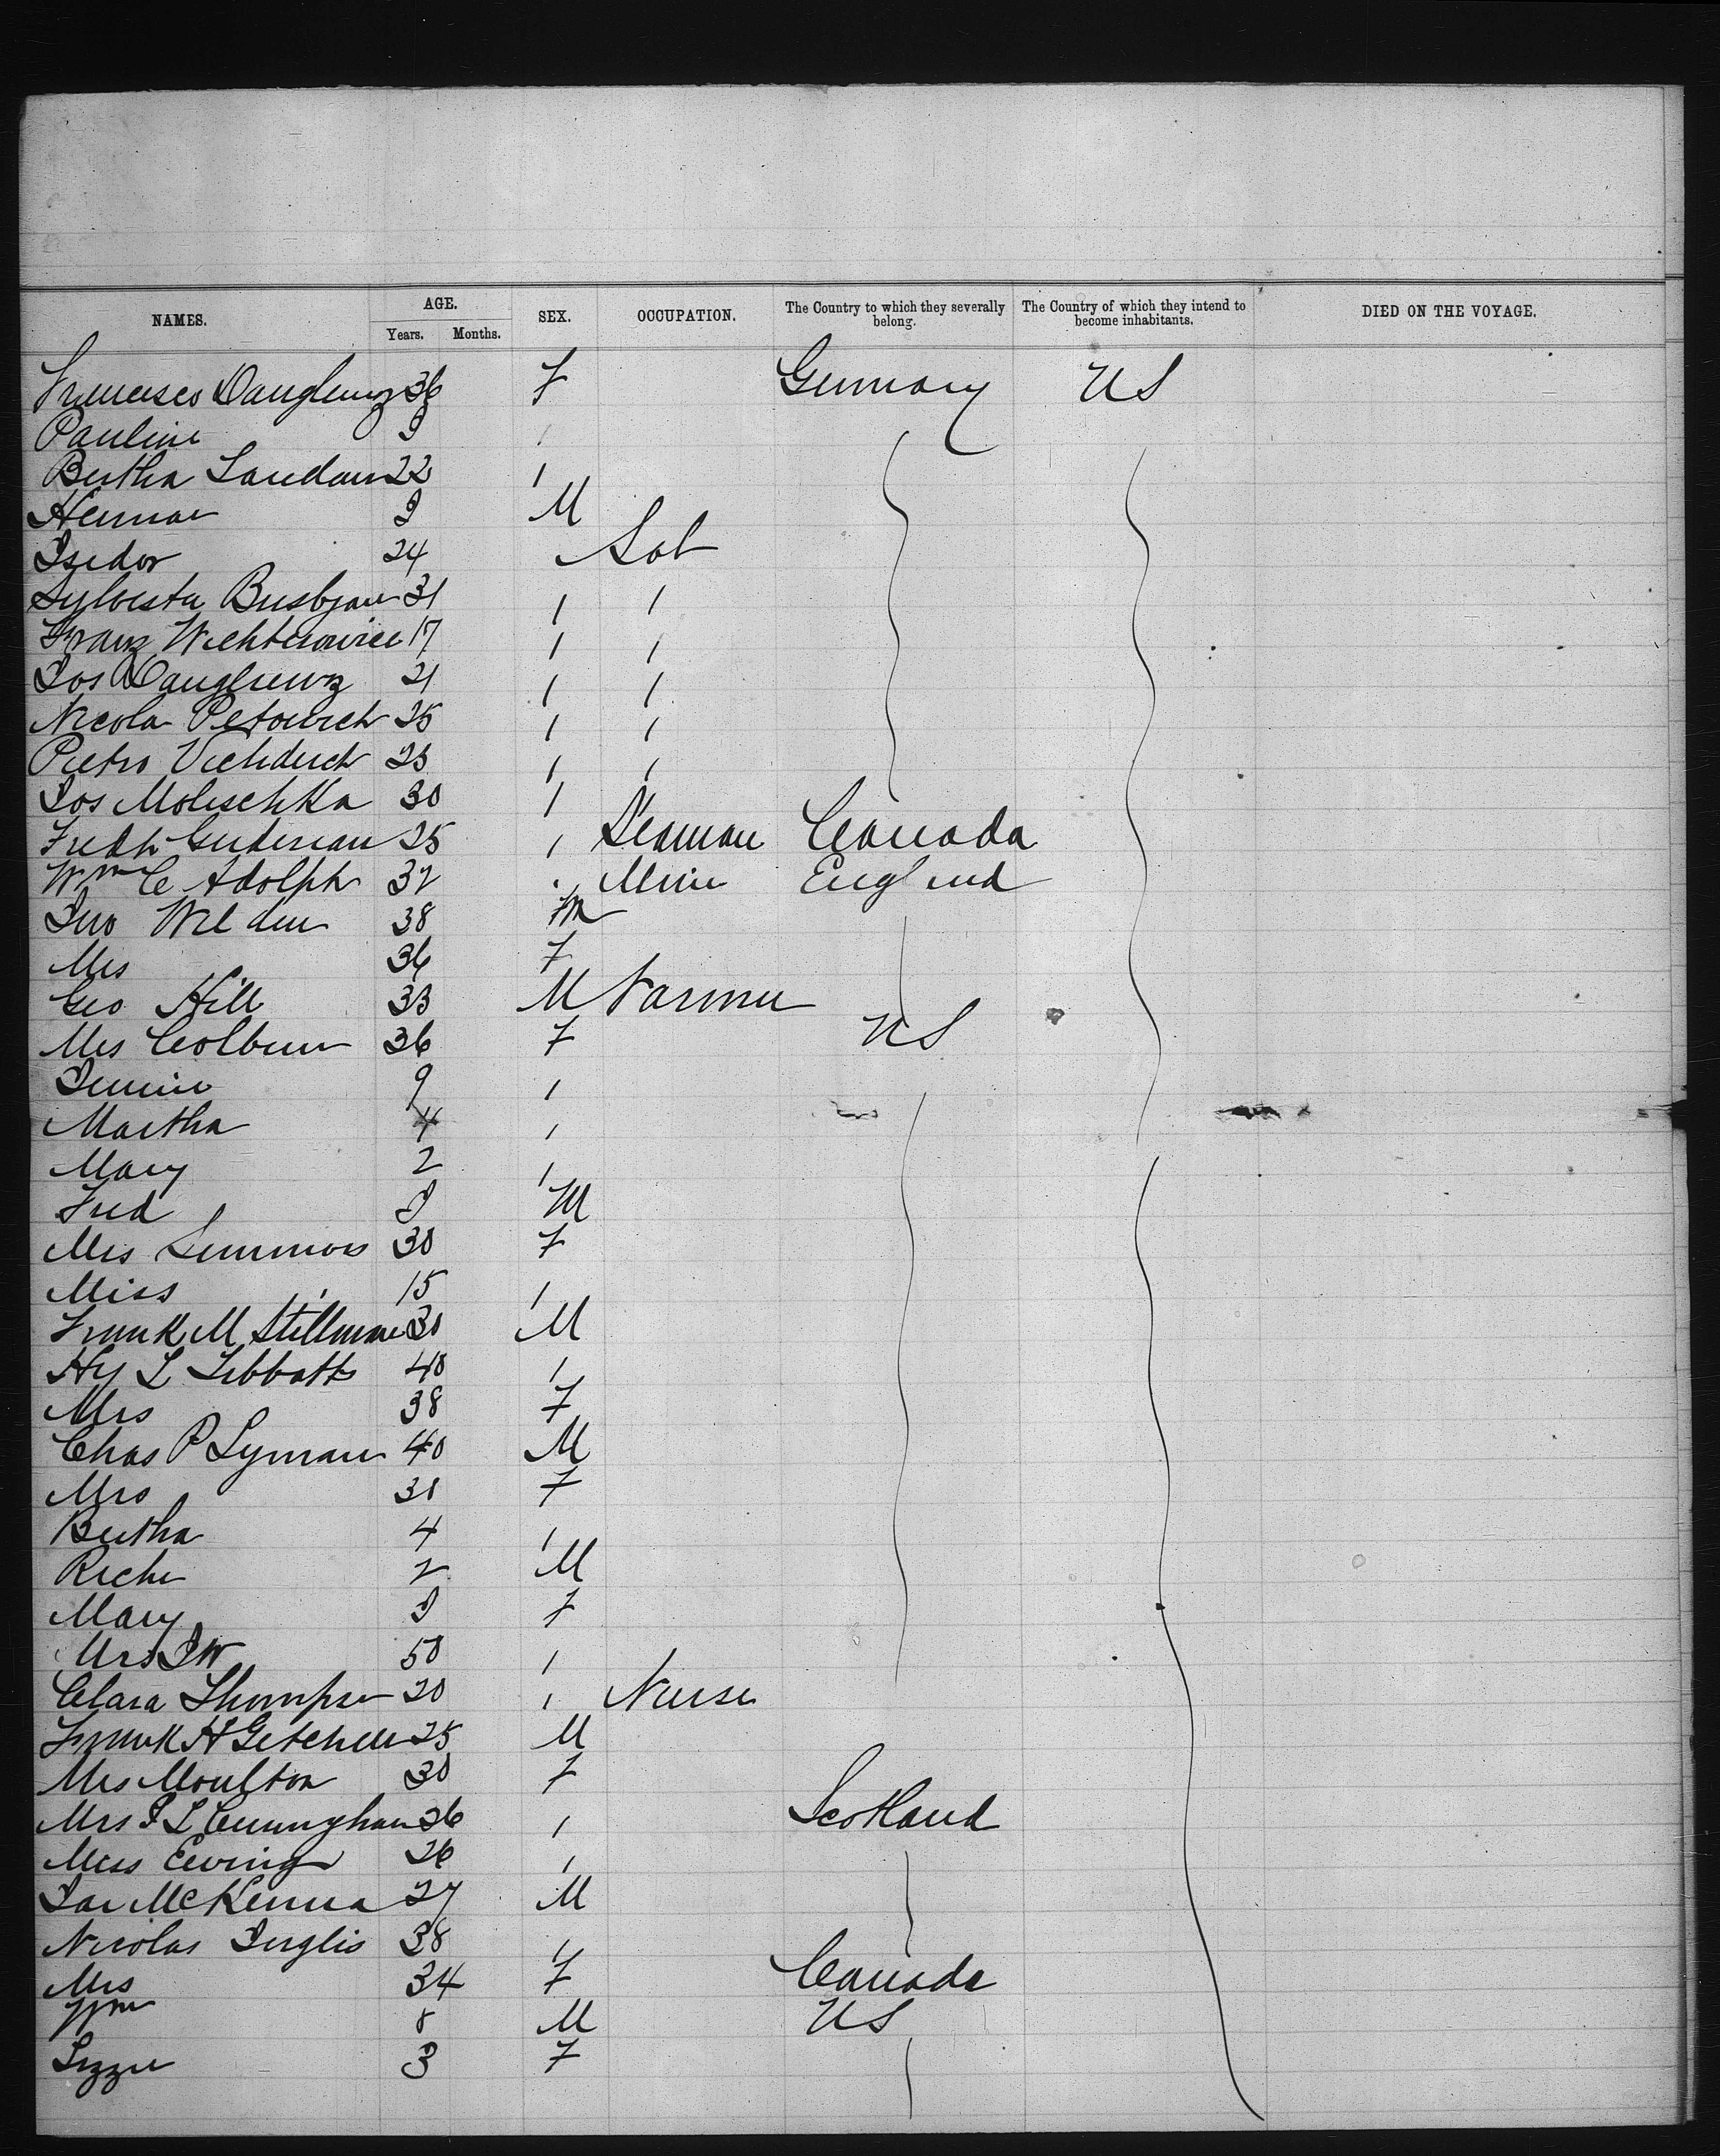 NAMES. AGE. Years. Months. SEX. OCCUPATION. The Country to which they severally belong. The Country of which they intend to become inhabitants. DIED ON THE VOYAGE.
36 F Germany US
Pauline
Bertha 22 /
M
Isidor 24 Lab
31 / /
Franz 17 / /
Jos 21 / /
Nicola Petovich 25 / /
Pietro 23 / /
Jos Molischka 30 /
Fredk Guderian 25 / Seaman Canada
Wm C Adolph 32 Miner England
Jno Wilden 38 M
Mrs 36 F
Geo Hill 33 M Farmer
Mrs Colburn 36 F US
Jennie 9 /
Martha 4 /
Mary 2 /
Fred M
Mrs Simmons 30 F
Miss 15 /
Frank M Stillman 30 M
Hy L Tibbatts 40 /
Mrs 38 F
Chas P Lyman 40 M
Mrs 30 F
Bertha 4 /
2 M
Mary F
Mrs J W 50 /
Clara Thompson 20 / Nurse
Frank H Getchell 25 M
Mrs Moulton 30 F
Mrs J L Cunningham 26 / Scotland
Miss Ewing 26 /
McKenna 27 M
Nicolas Inglis 38 /
Mrs 34 F Canada
Wm 8 M US
Lizzie 3 F